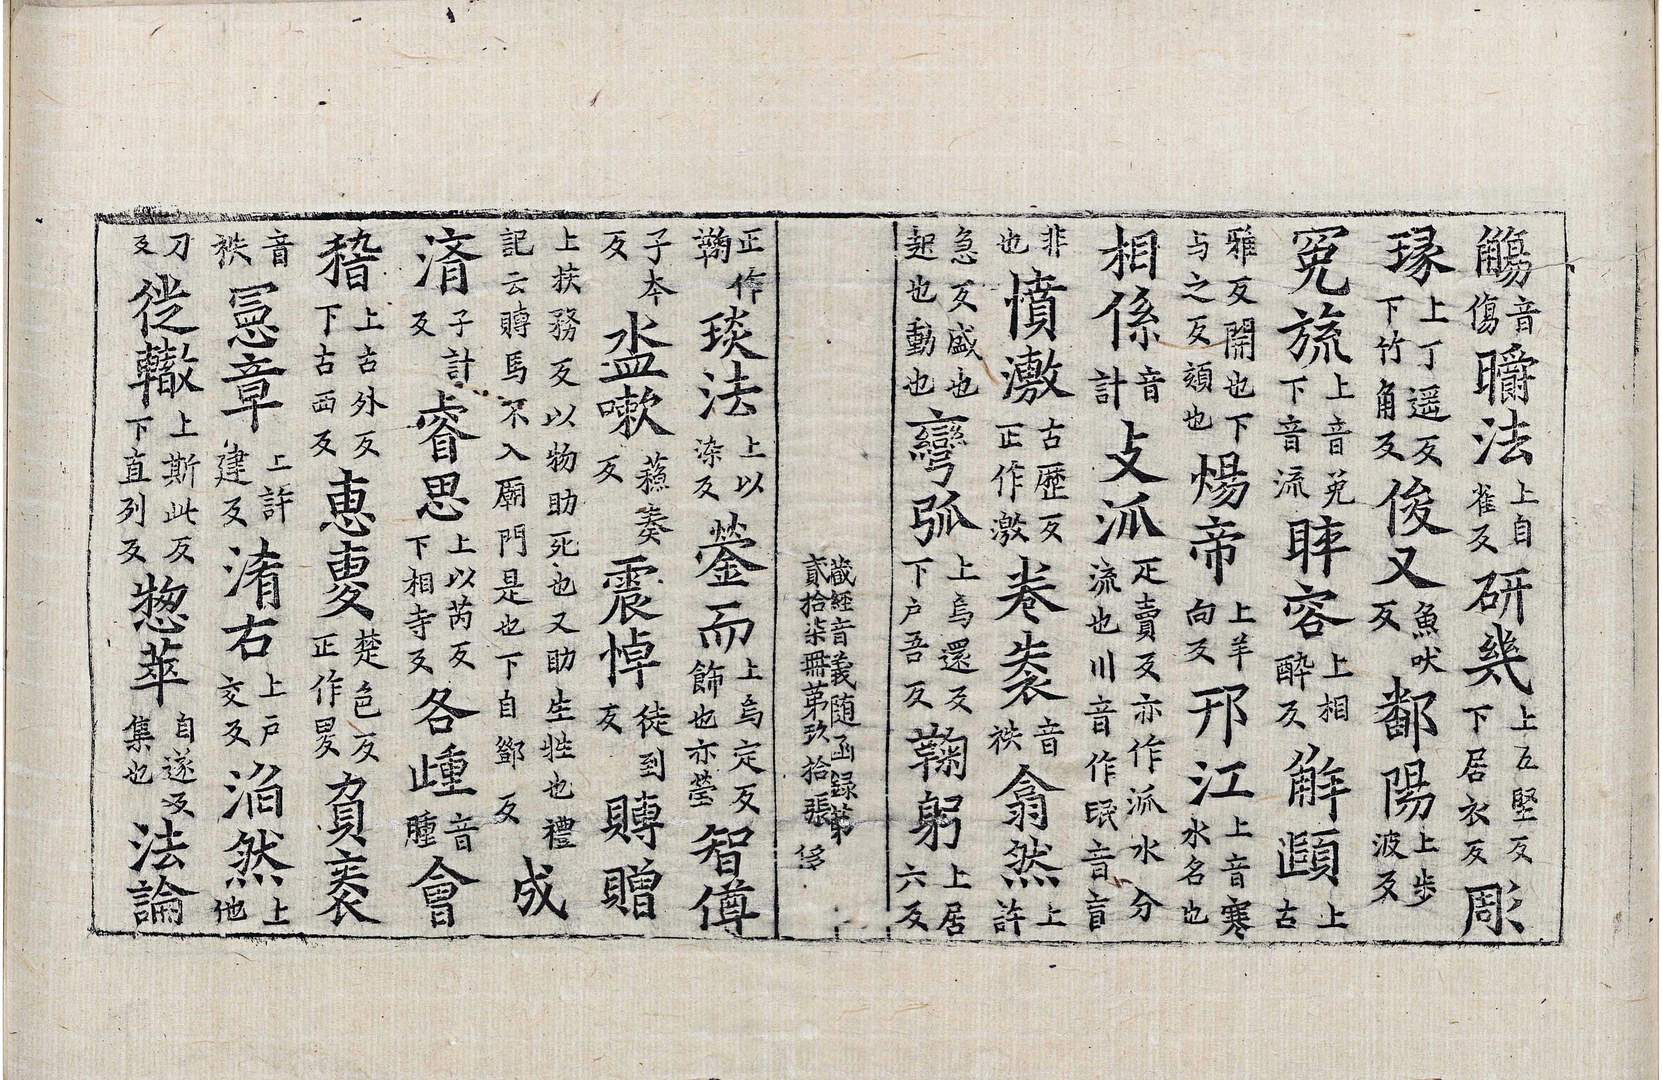 觴音傷㬭法上自雀反研幾上五堅反下居衣反彫
琢上丁遥反下竹角反俊乂魚吠反鄱陽上步波反
冕旒上音免下音流睟容上相醉反解頤上古
雅反開也下与之反頷也煬帝上羊向反邗江上音寒水名也
相係音計攴派疋賣反亦作派水分流也川音作㞶音盲
非也憤激古歷反正作激卷袠音袟翕然上許
急反盛也起也動也彎弧上烏還反下户吾反鞠躬上居六反
藏經音義随函録第貳拾柒冊第玖拾張
正作鞠琰法上以染反蓥而上烏定反飾也亦瑩智僔
子本反盇嗽蘓奏反震悼徒到反賻贈
上扶務反以物助死也又助生牲也禮記云賻馬不入廟門是也下自鄧反成
済子計反睿思上以芮反下相寺反各歱音腫會
稽上古外反下古西反恵㚆楚色反正作畟貟袠
音袟冝章上許建反淆右上户交反滔然上他
刀反徙轍上斯此反下直列反惣萃自遂反集也法論